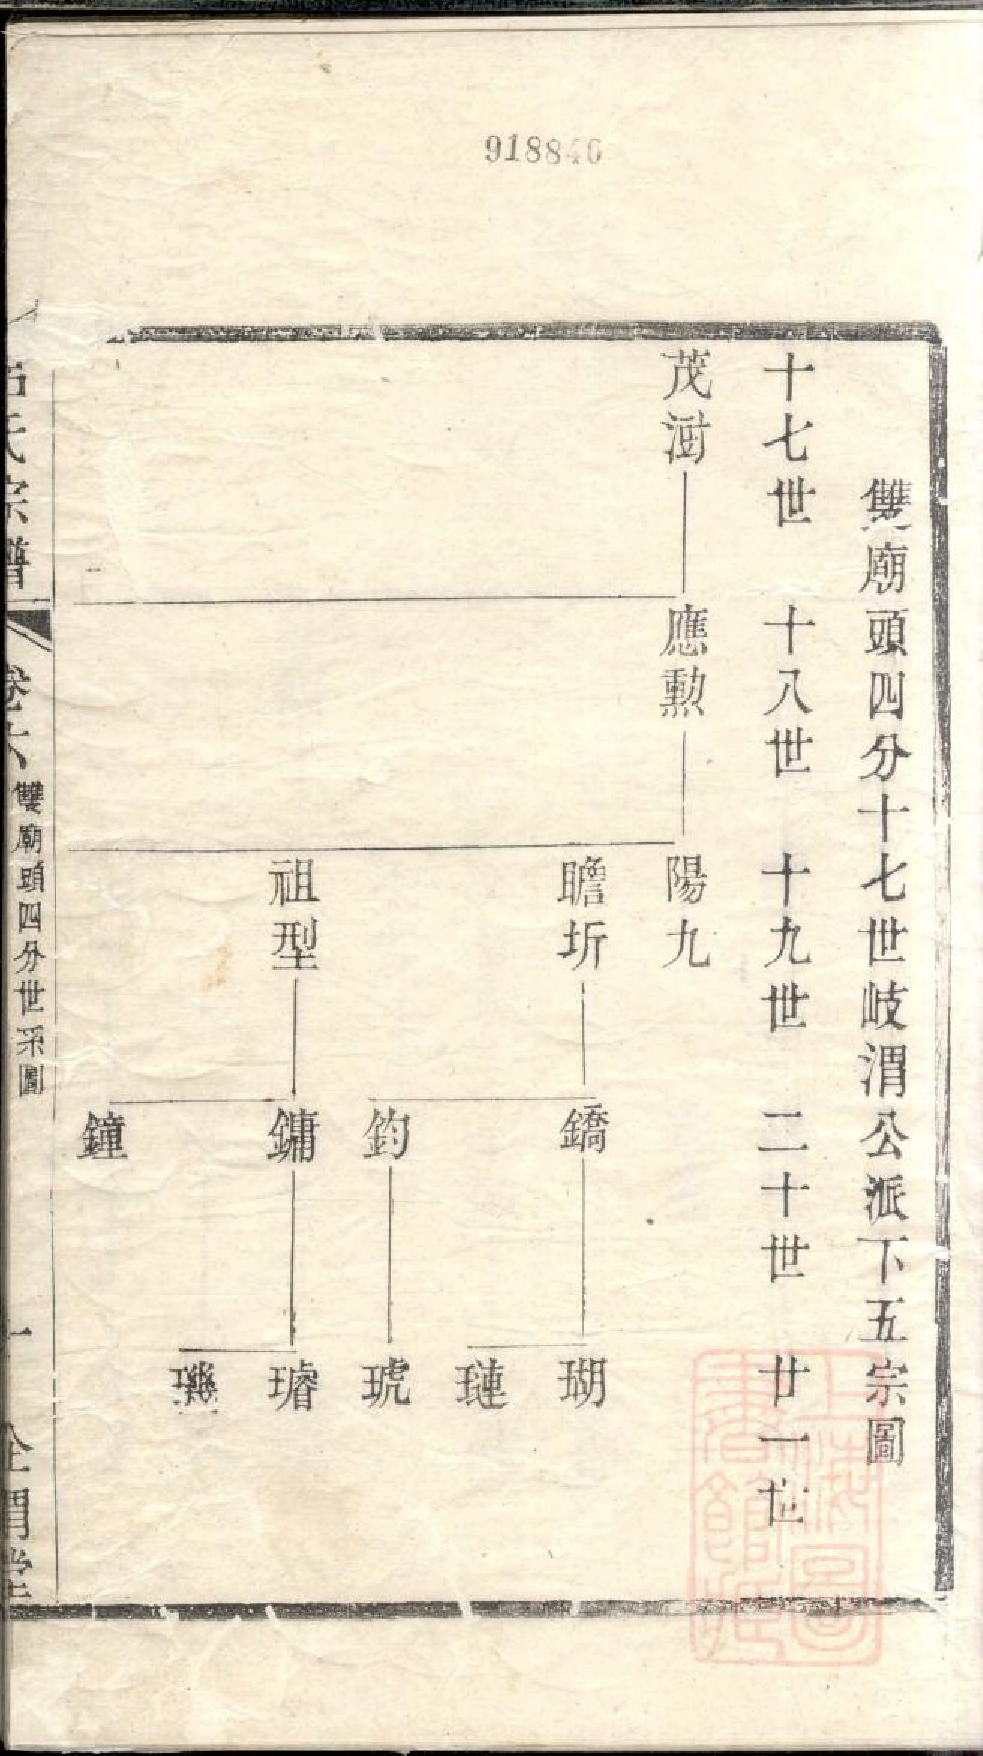 918840
雙廟頭四分十七世岐渭公派下五宗圖
十七世 十八世 十九世 二十世 廿一世
茂澍 應勳 陽九
瞻圻 鐈 瑚
璉
鈞 琥
祖型 鏞 璿
璣
鐘
呂氏宗譜 卷六 雙廟頭四分世系圖 一 渭堂
上海圖書館藏